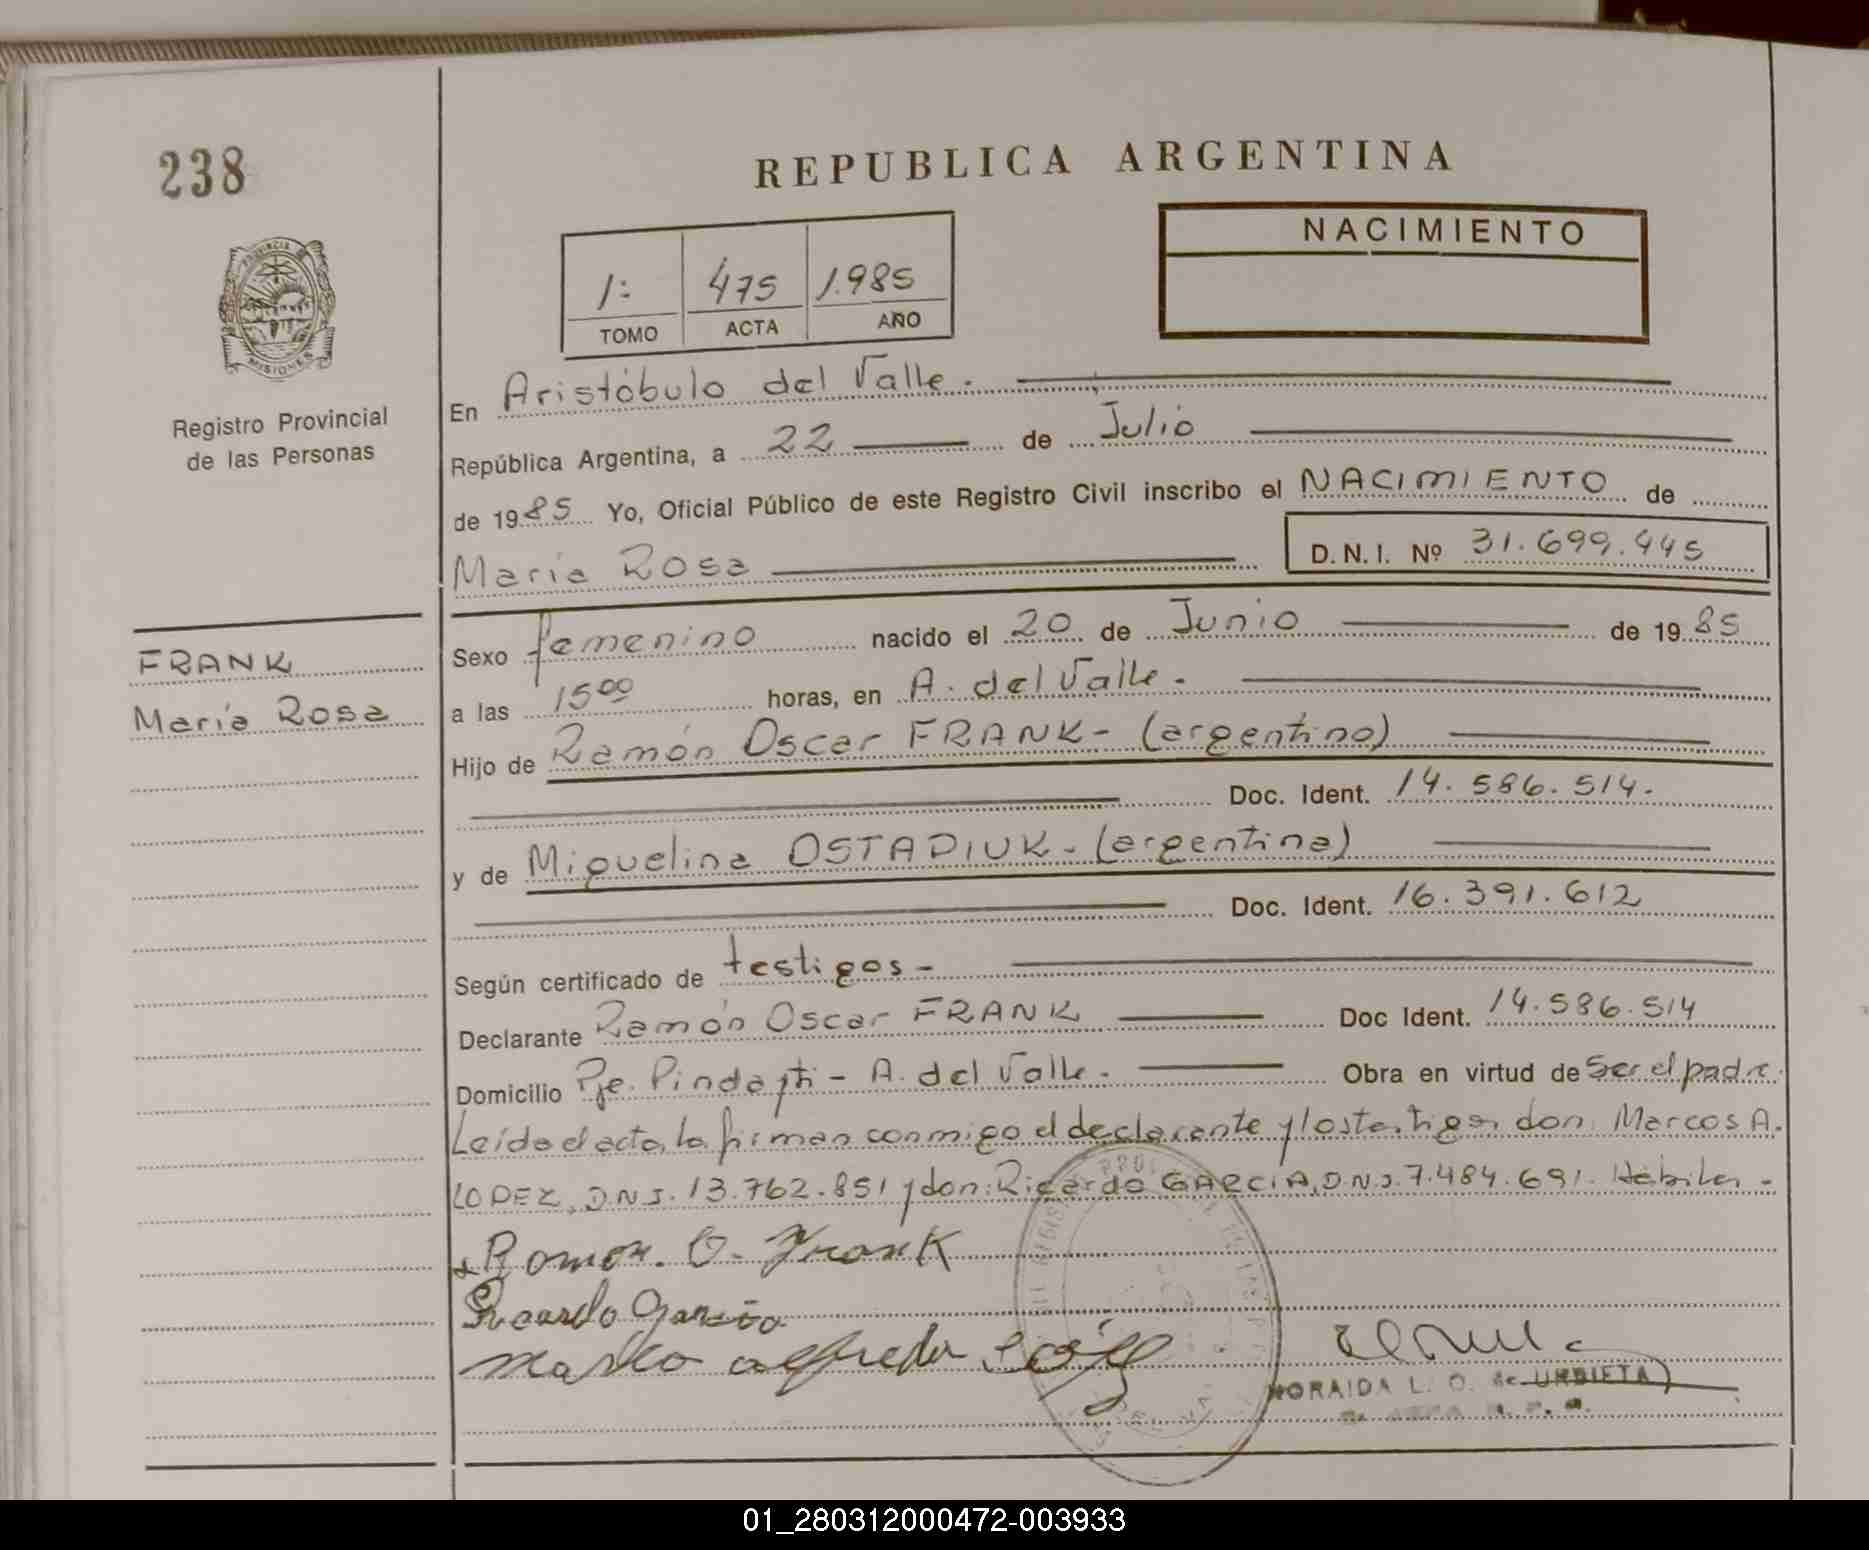 238
REPUBLICA ARGENTINA
NACIMIENTO
1: 475 1.985
TOMO ACTA AÑO
PROVINCIA DE
MISIONES
Registro Provincial
de las Personas
En Aristóbulo del Valle.
República Argentina, a 22 de Julio
de 1985 Yo, Oficial Público de este Registro Civil inscribo el NACIMIENTO de
María Rosa D.N.I. Nº 31.699.445
FRANK
María Rosa
Sexo femenino nacido el 20 de Junio de 1985
a las 15 00 horas, en A. del Valle.
Hijo de Ramón Oscar FRANK- (argentino)
Doc. Ident. 14.586.514.
y de Miguelina OSTAPIUK- (argentina)
Doc. Ident. 16.391.612
Según certificado de testigos-
Declarante Ramón Oscar FRANK Doc Ident. 14.586.514
Domicilio Pje. Pindayti - A. del Valle. Obra en virtud de ser el padre.
Leída el acta, la firman conmigo el declarante y los testigos don: Marcos A.
LOPEZ, D.N.I. 13.762.851 y don: Ricardo GARCIA, D.N.I. 7.484.691. Hábiles-
Ramon. O. Frank
Ricardo Garcia
Marco alfredo
NORAIDA L. O. de URBIETA
01_280312000472-003933